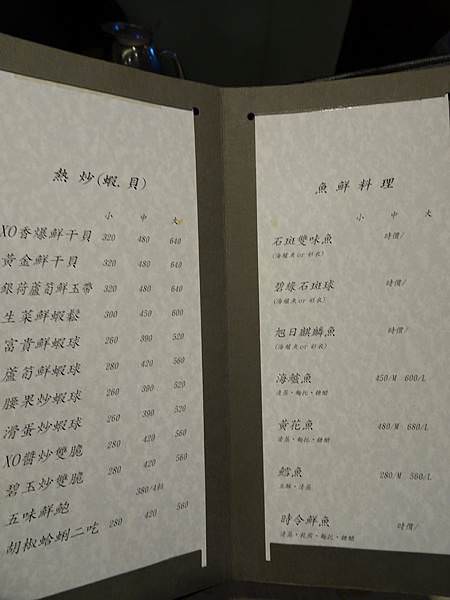 熱炒(蝦.貝)
小 中 大
XO香爆鮮干貝 320 480 640
黃金鮮干貝 320 480 640
銀荷蘆荀鮮玉帶 320 480 640
生菜鮮蝦鬆 300 450 600
富貴鮮蝦球 260 390 520
蘆荀鮮蝦球 280 420 560
腰果炒蝦球 260 390 520
滑蛋炒蝦球 260 390 520
XO醬炒雙脆 280 420 560
碧玉炒雙脆 280 420 560
五味鮮鮑 380/4粒
胡椒蛤蜊二吃 280 420 560
魚鮮料理
小 中 大
石斑雙味魚 時價/
(海鱸魚or
碧綠石斑球 時價/
(海鱸魚or
旭日麒麟魚 時價/
(海鱸魚or
海鱸魚 450/M 600/L
清蒸、糖醋
黃花魚 480/M 680/L
清蒸、糖醋
鱈魚 280/M 560/L
豆酥、清蒸
時令鮮魚 時價/
清蒸、糖醋